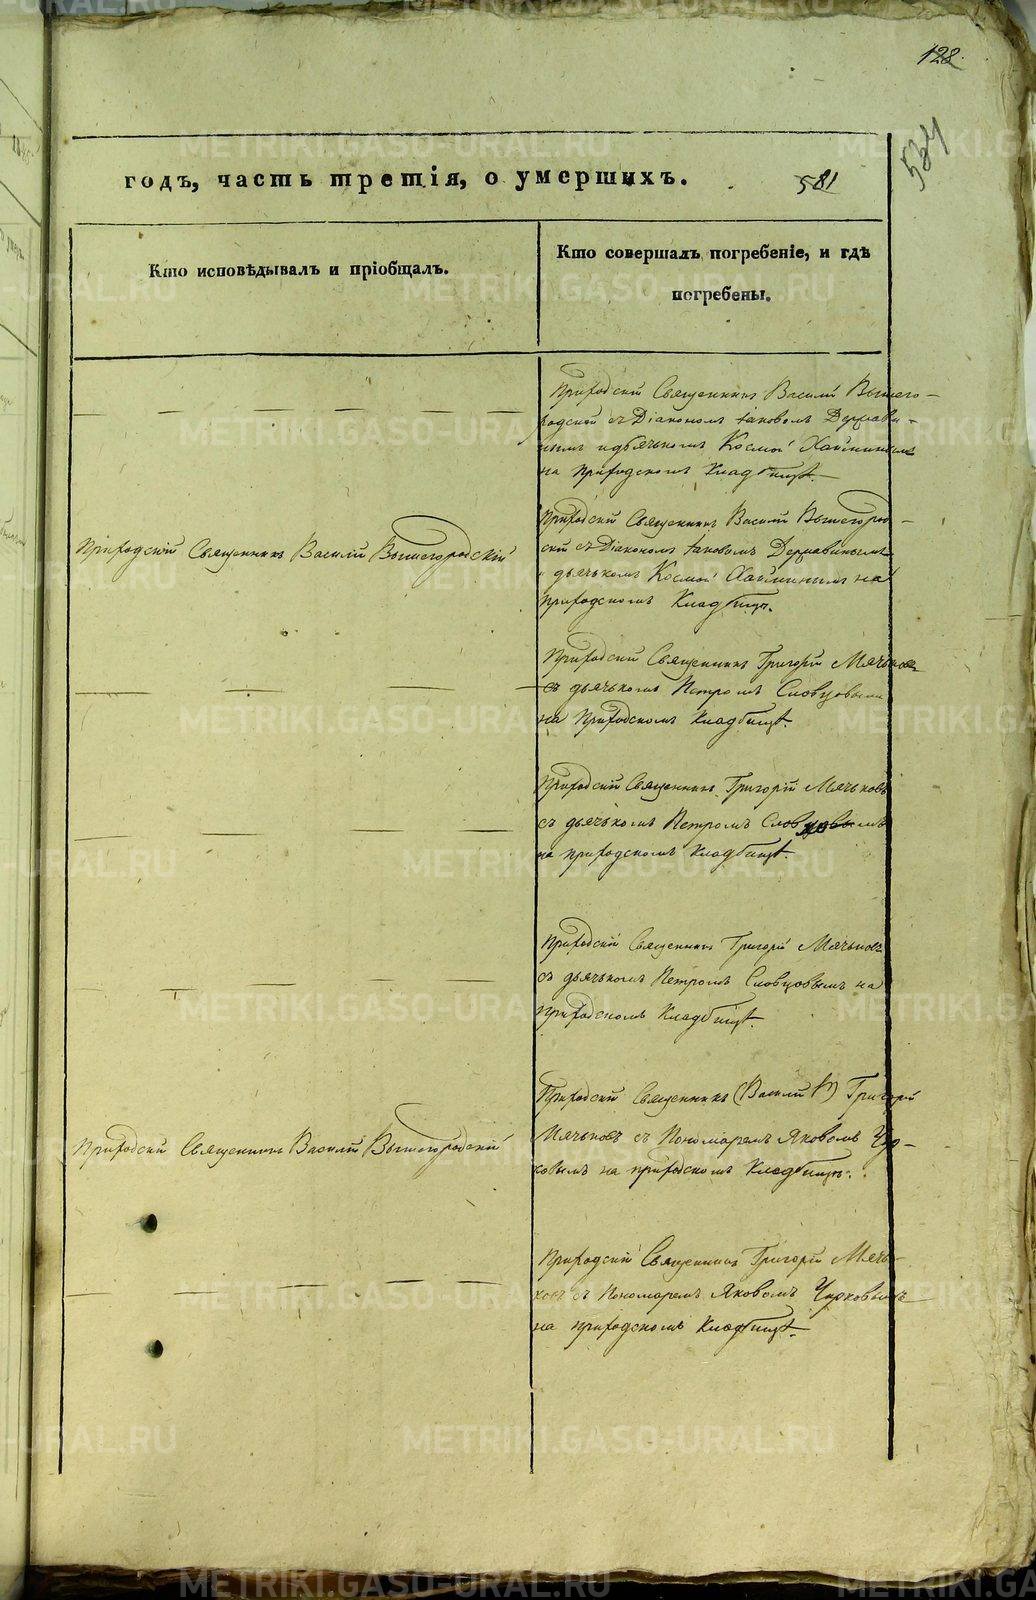 128.
534
годъ, часть третія, о умершихъ.
581
Кто исповѣдывалъ и пріобщалъ.
Кто совершалъ погребеніе, и гдѣ
погребены.
Приходскій Священникъ Василій Вышего-
родскій съ Діакономъ Іаковомъ Держави-
нымъ и дьячькомъ Космой Хаминымъ
на приходскомъ Кладбищѣ.
Приходскій Священникъ Василій Вышегородскій
Приходскій Священникъ Василій Вышегород-
скій съ Діакономъ Іаковомъ Державинымъ
и дьячькомъ Космой Хаминымъ на
приходскомъ Кладбищѣ.
Приходскій Священникъ Григорій Мячьковъ
съ дьячькомъ Петромъ Словцовымъ
на Приходскомъ Кладбищѣ.
Приходскій Священникъ Григорій Мячьковъ
съ дьячькомъ Петромъ Словцовымъ
на приходскомъ Кладбищѣ.
Приходскій Священникъ Григорій Мячьковъ
съ дьячькомъ Петромъ Словцовымъ на
приходскомъ Кладбищѣ.
Приходскій Священникъ Василій Вышегородскій
Приходскій Священникъ (Василій В) Григорій
Мячьковъ съ Пономаремъ Яковомъ
на приходскомъ Кладбищѣ.
Приходскій Священникъ Григорій Мячь-
ковъ съ Пономаремъ Яковомъ
на приходскомъ Кладбищѣ.
METRIKI.GASO-URAL.RU